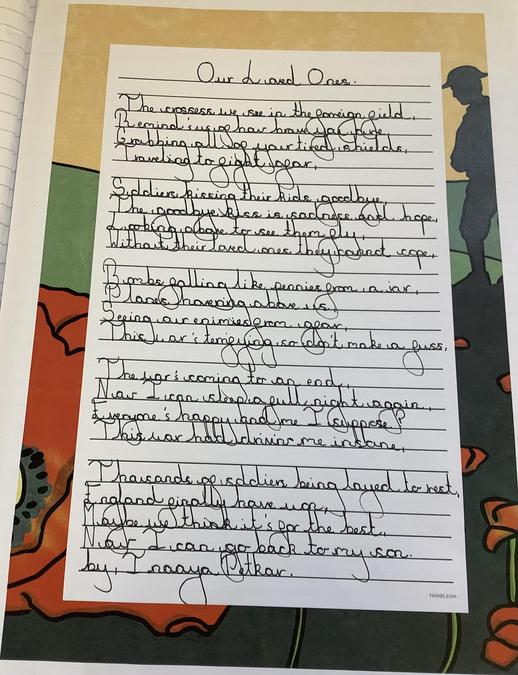 Our Loved Ones.
The crossess we see in the foreign field,
Remind's us of how brave you were,
Grabbing all of your tired shields,
Traveling to fight afar,
Soldiers kissing their kids goodbye,
The goodbye kiss is sadness and hope,
Looking above to see them fly,
Without their loved ones they cannot cope,
Bombs falling like pennies from a jar,
Planes hovering above us,
Seeing our enimies from afar,
This war's terrifying so don't make a fuss,
The war's coming to an end,
Now I can sleep a full night again,
Everyone's happy and me I suppose?
This war had driven me insane,
Thousands of soldiers being layed to rest,
England finally have won,
Maybe we think it's for the best,
Now I can go back to my son.
by, Inaaya Petkar.
twinkl.com